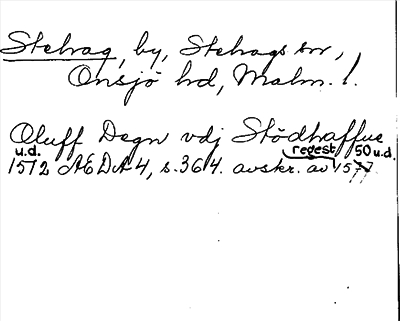 Stehag, by, Stehags sn,
Onsjö hd, Malm. l.
Oluff Degn vdj Stödhaffue
u.d. regest 50 u.d.
1512 ÆDA 4, s. 364. avskr. av 1577.